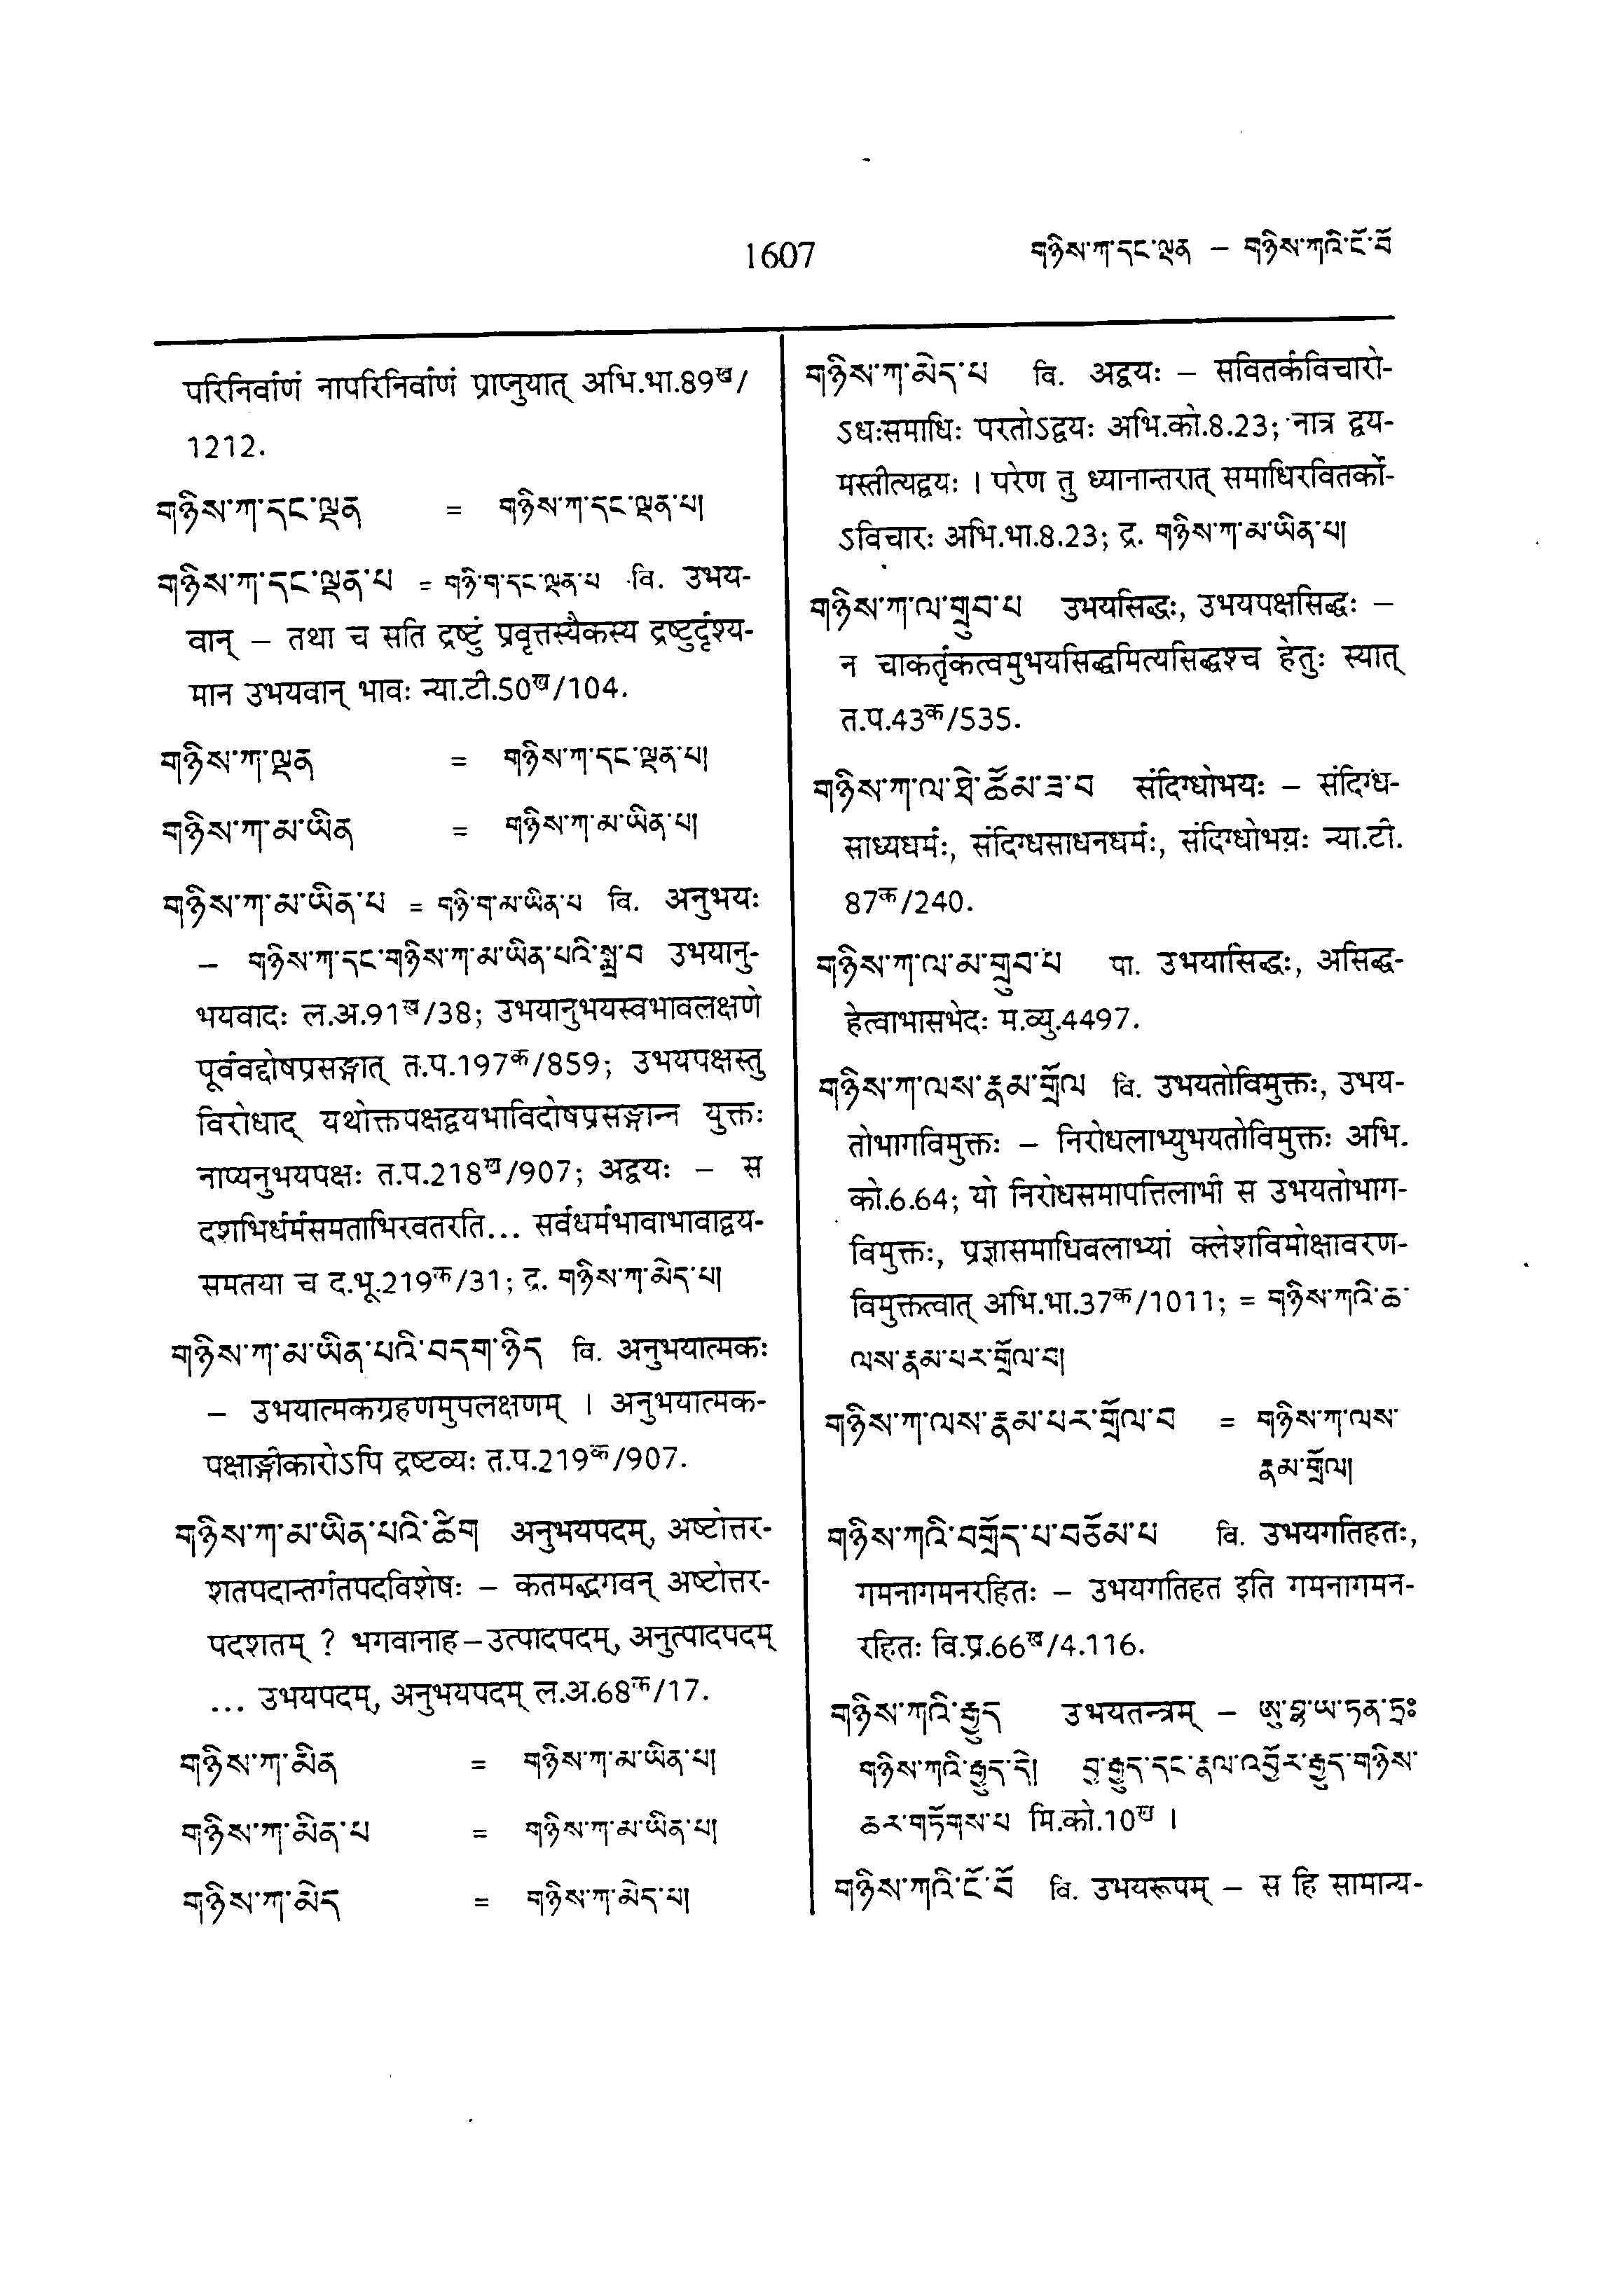 1607
གཉིས་ཀ་དང་ལྡན – གཉིས་ཀའི་ངོ་བོ
परिनिर्वाणं नापरिनिर्वाणं प्राप्नुयात् अभि.भा.89ख/
1212.
གཉིས་ཀ་དང་ལྡན = གཉིས་ཀ་དང་ལྡན་པ།
གཉིས་ཀ་དང་ལྡན་པ = གཉི་ག་དང་ལྡན་པ वि. उभय-
वान् – तथा च सति द्रष्टुं प्रवृत्तस्यैकस्य द्रष्टुर्दृश्य-
मान उभयवान् भावः न्या.टी.50ख/104.
གཉིས་ཀ་ལྡན = གཉིས་ཀ་དང་ལྡན་པ།
གཉིས་ཀ་མ་ཡིན = གཉིས་ཀ་མ་ཡིན་པ།
གཉིས་ཀ་མ་ཡིན་པ = གཉི་ག་མ་ཡིན་པ वि. अनुभयः
– གཉིས་ཀ་དང་གཉིས་ཀ་མ་ཡིན་པའི་སྨྲ་བ उभयानु-
भयवादः ल.अ.91ख/38; उभयानुभयस्वभावलक्षणे
पूर्ववद्दोषप्रसङ्गात् त.प.197क/859; उभयपक्षस्तु
विरोधाद् यथोक्तपक्षद्वयभाविदोषप्रसङ्गान्न युक्तः
नाप्यनुभयपक्षः त.प.218ख/907; अद्वयः – स
दशभिर्धर्मसमताभिरवतरति... सर्वधर्मभावाभावाद्वय-
समतया च द.भू.219क/31; द्र. གཉིས་ཀ་མེད་པ།
གཉིས་ཀ་མ་ཡིན་པའི་བདག་ཉིད वि. अनुभयात्मकः
– उभयात्मकग्रहणमुपलक्षणम् । अनुभयात्मक-
पक्षाङ्गीकारोऽपि द्रष्टव्यः त.प.219क/907.
གཉིས་ཀ་མ་ཡིན་པའི་ཚིག अनुभयपदम्, अष्टोत्तर-
शतपदान्तर्गतपदविशेषः – कतमद्भगवन् अष्टोत्तर-
पदशतम् ? भगवानाह – उत्पादपदम्, अनुत्पादपदम्
... उभयपदम्, अनुभयपदम् ल.अ.68क/17.
གཉིས་ཀ་མིན = གཉིས་ཀ་མ་ཡིན་པ།
གཉིས་ཀ་མིན་པ = གཉིས་ཀ་མ་ཡིན་པ།
གཉིས་ཀ་མེད = གཉིས་ཀ་མེད་པ།
གཉིས་ཀ་མེད་པ वि. अद्वयः – सवितर्कविचारो-
ऽधःसमाधिः परतोऽद्वयः अभि.को.8.23; नात्र द्वय-
मस्तीत्यद्वयः । परेण तु ध्यानान्तरात् समाधिरवितर्को-
ऽविचारः अभि.भा.8.23; द्र. གཉིས་ཀ་མ་ཡིན་པ།
གཉིས་ཀ་ལ་གྲུབ་པ उभयसिद्धः, उभयपक्षसिद्धः –
न चाकर्तृकत्वमुभयसिद्धमित्यसिद्धश्च हेतुः स्यात्
त.प.43क/535.
གཉིས་ཀ་ལ་ཐེ་ཚོམ་ཟ་བ संदिग्धोभयः – संदिग्ध-
साध्यधर्मः, संदिग्धसाधनधर्मः, संदिग्धोभयः न्या.टी.
87क/240.
གཉིས་ཀ་ལ་མ་གྲུབ་པ पा. उभयासिद्धः, असिद्ध-
हेत्वाभासभेदः म.व्यु.4497.
གཉིས་ཀ་ལས་རྣམ་གྲོལ वि. उभयतोविमुक्तः, उभय-
तोभागविमुक्तः – निरोधलाभ्युभयतोविमुक्तः अभि.
को.6.64; यो निरोधसमापत्तिलाभी स उभयतोभाग-
विमुक्तः, प्रज्ञासमाधिबलाभ्यां क्लेशविमोक्षावरण-
विमुक्तत्वात् अभि.भा.37क/1011; = གཉིས་ཀའི་ཆ་
ལས་རྣམ་པར་གྲོལ་བ།
གཉིས་ཀ་ལས་རྣམ་པར་གྲོལ་བ = གཉིས་ཀ་ལས་
རྣམ་གྲོལ།
གཉིས་ཀའི་བགྲོད་པ་བཅོམ་པ वि. उभयगतिहतः,
गमनागमनरहितः – उभयगतिहत इति गमनागमन-
रहितः वि.प्र.66ख/4.116.
གཉིས་ཀའི་རྒྱུད उभयतन्त्रम् – ཨུ་བྷ་ཡ་ཏན་ཏྲཿ
གཉིས་ཀའི་རྒྱུད་དེ། བྱ་རྒྱུད་དང་རྣལ་འབྱོར་རྒྱུད་གཉིས་
ཆར་གཏོགས་པ मि.को.10ख ।
གཉིས་ཀའི་ངོ་བོ वि. उभयरूपम् – स हि सामान्य-